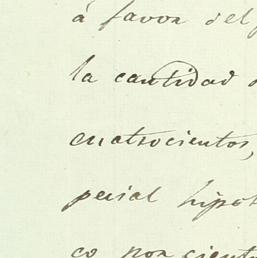 á favor del
la cantidad
cuatrocientos,
pecial hipot
co por ciento